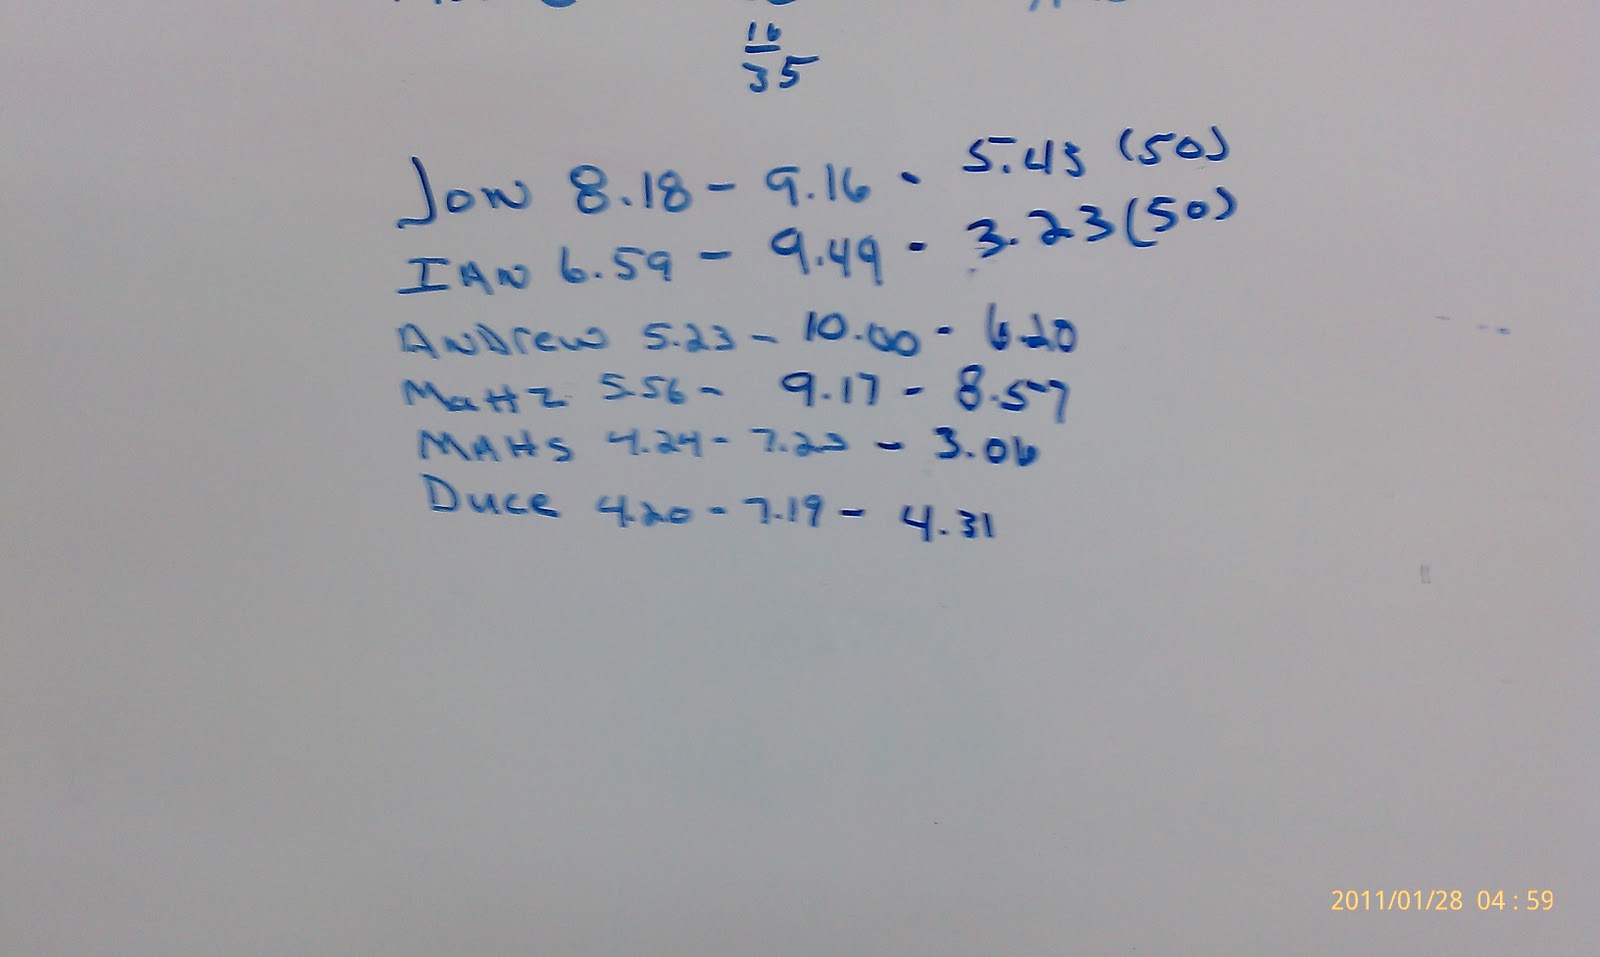 16
35
Jon 8.18 - 9.16 - 5.43 (50)
IAN 6.59 - 9.49 - 3.23 (50)
Andrew 5.23 - 10.00 - 6.20
Matt Z 5.56 - 9.17 - 8.57
Matt S 4.24 - 7.23 - 3.06
Duce 4.20 - 7.19 - 4.31
2011/01/28 04:59